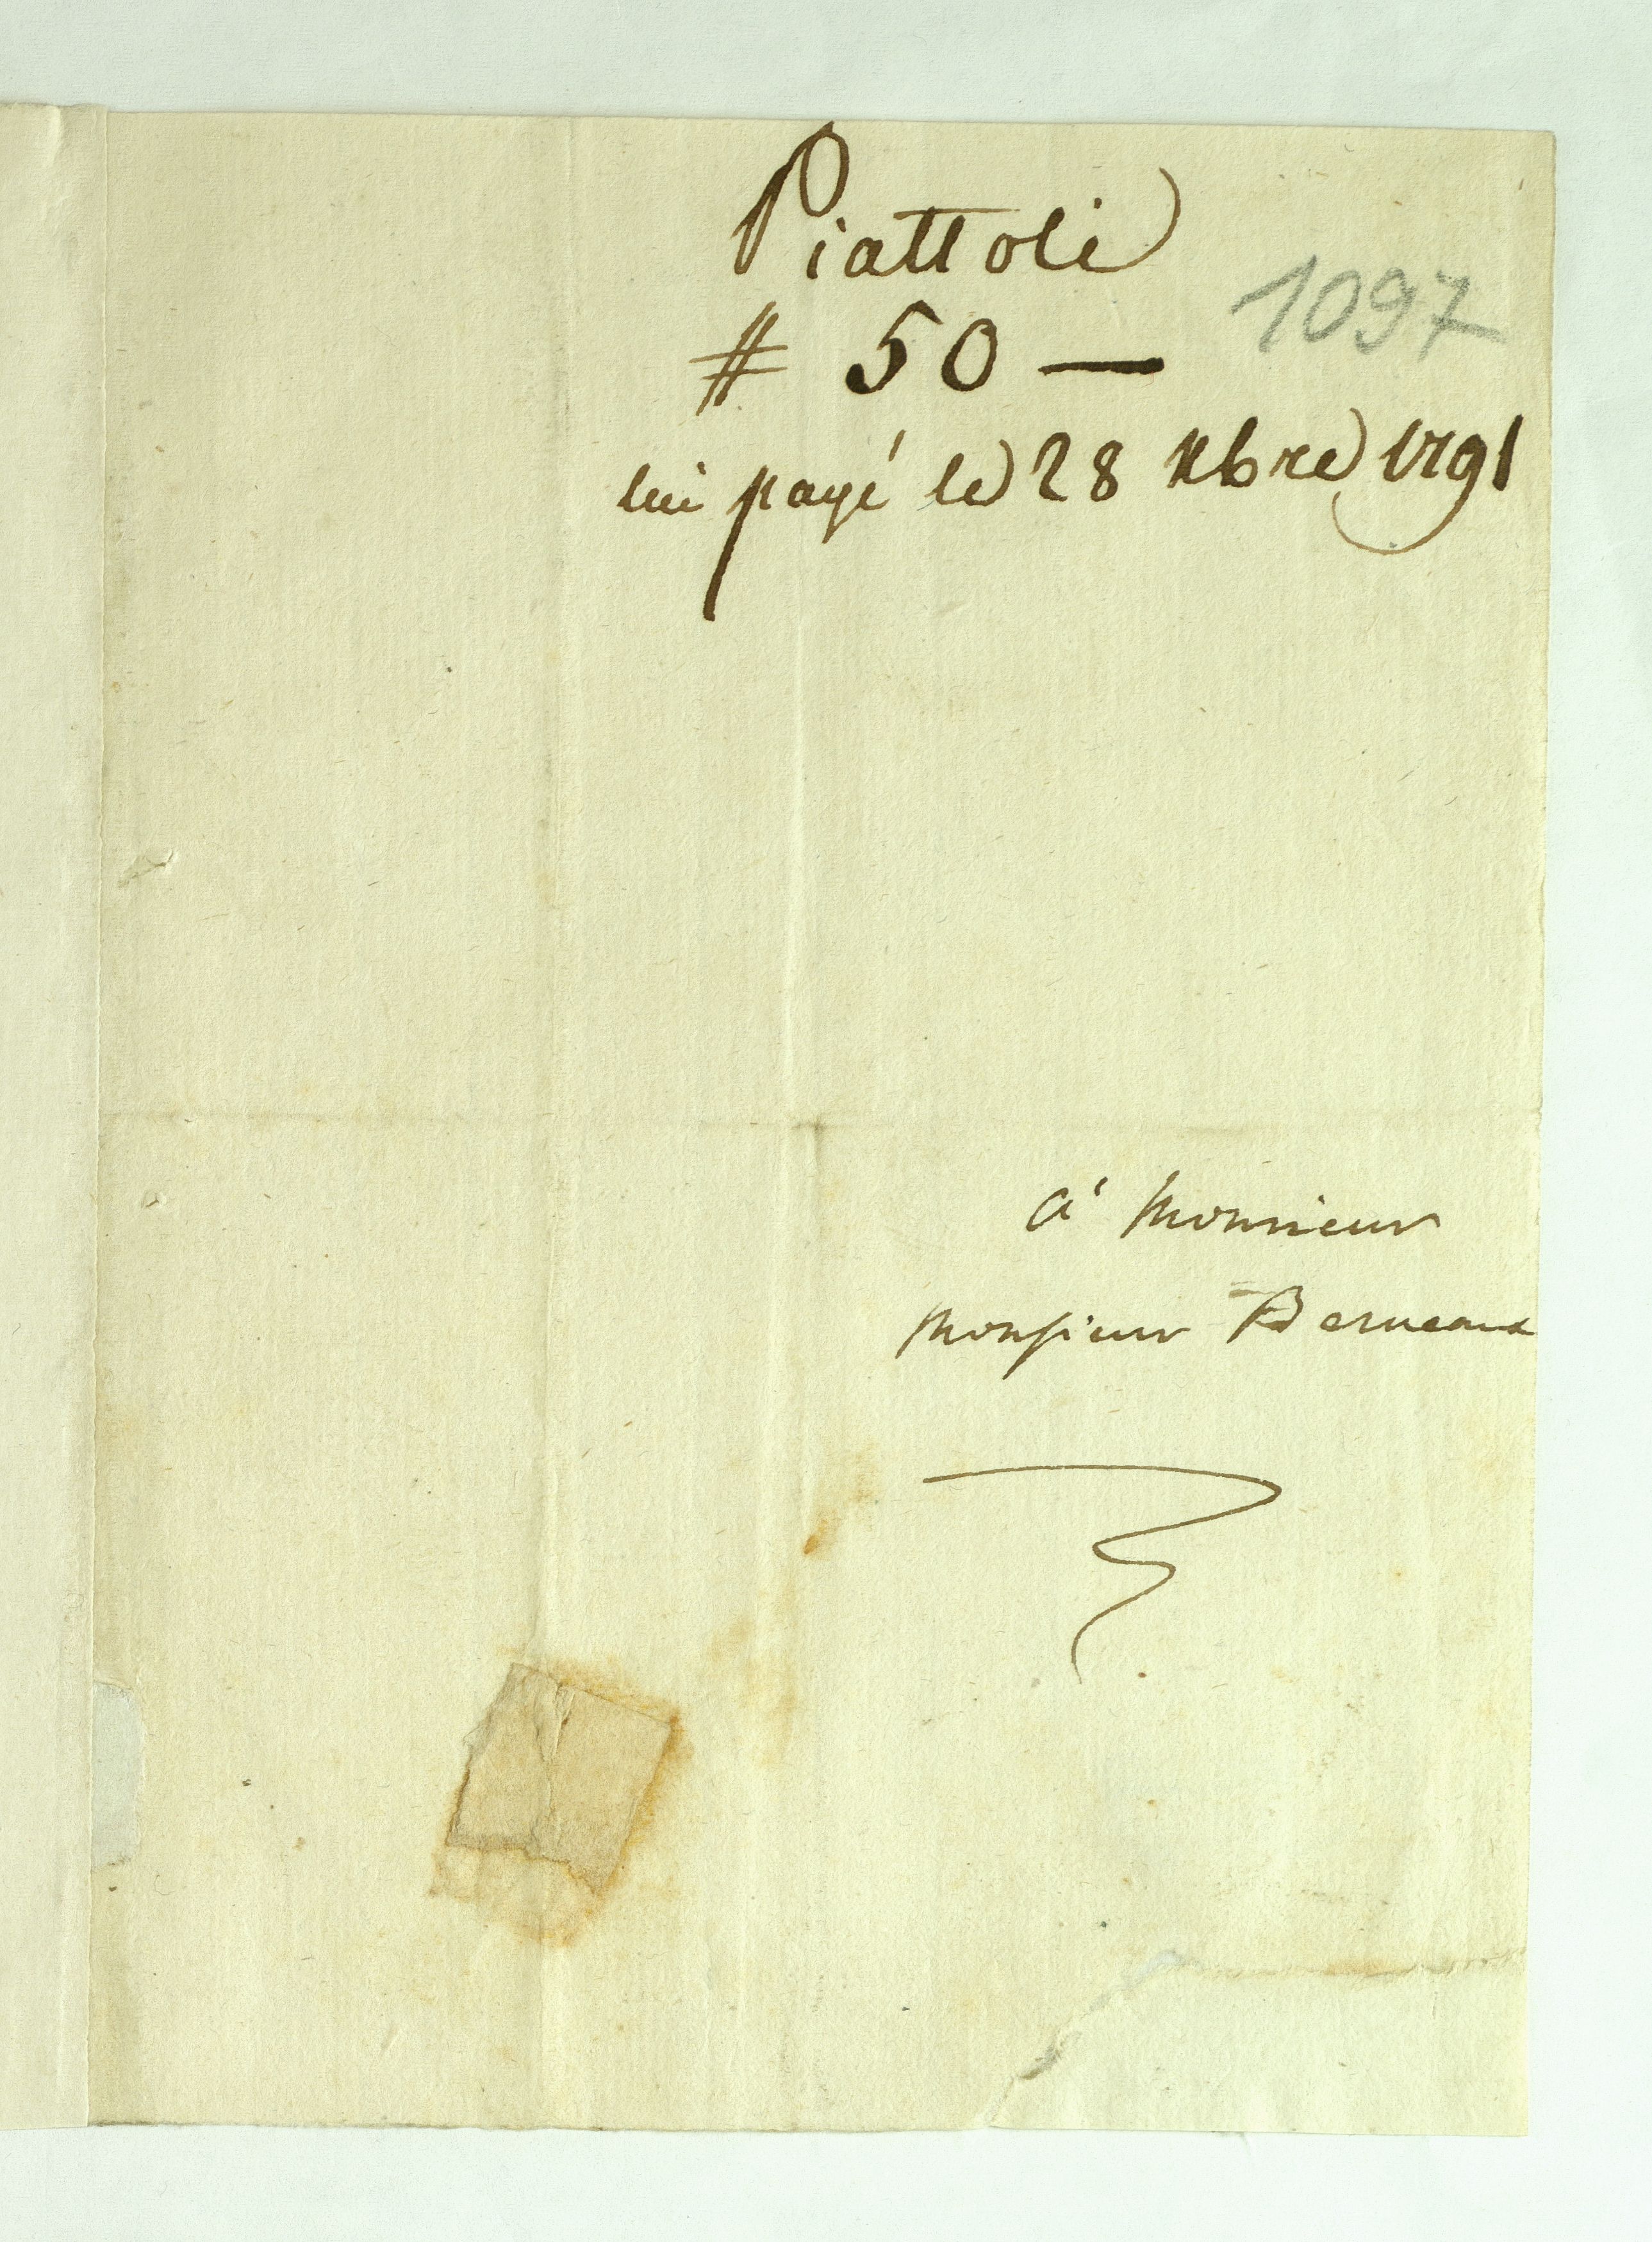 Piattoli
# 50 —
1097
lui payé le 28 Xbre 1791
à Monsieur
Monsieur Berneaux